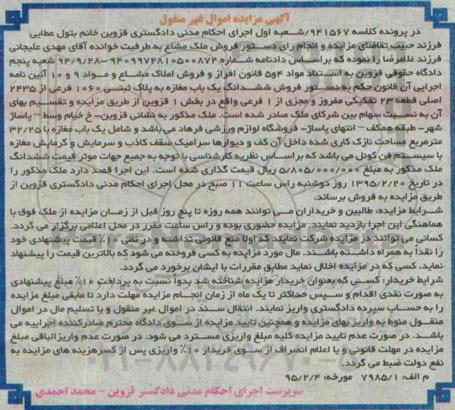 آگهی مزایده اموال غیر منقول
در پرونده کلاسه ۹۴۱۵۶۷/شعبه اول اجرای احکام مدنی دادگستری قزوین خانم بتول عطایی
فرزند حبیب تقاضای مزایده و انجام رای دستور فروش ملک مشاع به طرفیت خوانده آقای مهدی علیجانی
فرزند غلامرضا را نموده که بر اساس دادنامه شماره ۹۴۰۹۹۷۲۸۱۰۵۰۰۸۷۴-۹۴/۹/۲۸ شعبه پنجم
دادگاه حقوقی قزوین به استناد مواد ۴و۵ قانون افراز و فروش املاک مشاع و مواد ۹ و ۱۰ آئین نامه
اجرایی آن قانون حکم به دستور فروش ششدانگ یک باب مغازه به پلاک ثبتی ۱۰۶۰ فرعی از ۲۴۳۵
اصلی قطعه ۲۳ تفکیکی مفروز و مجزی از ۱ فرعی واقع در بخش ۱ قزوین از طریق مزایده و تقسیم بهای
آن به نسبت سهام بین شرکای ملک صادر شده است. ملک مذکور به نشانی قزوین- خ خیام وسط - پاساژ
شهر- طبقه همکف - انتهای پاساژ- فروشگاه لوازم ورزشی فرهاد می باشد و شامل یک باب مغازه با ۳۲/۲۵
مترمربع مساحت نازک کاری شده داخل آن کف و دیوارها سرامیک سقف کاذب و سرمایش و گرمایش مغازه
با سیستم فن کوئل می باشد که بر اساس نظریه کارشناسی با توجه به جمیع جهات موثر قیمت ششدانگ
ملک مذکور به مبلغ ۵/۸۰۵/۰۰۰/۰۰۰ ریال قیمت گذاری شده است. این اجرا قصد دارد ملک مذکور را
در تاریخ ۱۳۹۵/۲/۲۰ روز دوشنبه راس ساعت ۱۱ صبح در محل اجرای احکام مدنی دادگستری قزوین از
طریق مزایده به فروش برساند.
شرایط مزایده: طالبین و خریداران می توانند همه روزه تا پنج روز قبل از زمان مزایده از ملک فوق با
هماهنگی این اجرا بازدید نمایند. مزایده حضوری بوده و راس ساعت مقرر در محل اعلامی برگزار می گردد.
کسانی می توانند در مزایده شرکت نمایند که اولا منع قانونی نداشته و در ثانی ۱۰٪ قیمت پیشنهادی خود
را نقدا به همراه داشته باشند. مال مورد مزایده به کسی فروخته می شود که بالاترین قیمت را پیشنهاد
نماید. کسی که در مزایده اخلال نماید مطابق مقررات با ایشان برخورد می گردد.
شرایط خریدار: کسی که بعنوان خریدار مزایده شناخته شد بدوا نسبت به پرداخت ۱۰٪ مبلغ پیشنهادی
به صورت نقدی اقدام و سپس حداکثر تا یک ماه از زمان انجام مزایده مهلت دارد تا مابقی مبلغ مزایده
را به حساب سپرده دادگستری واریز نمایند. انتقال سند در اموال غیر منقول و یا تسلیم مال در اموال
منقول منوط به واریز بهای مزایده و همچنین تایید مزایده از سوی دادگاه محترم صادرکننده اجراییه می
باشد. در صورت عدم تایید مزایده کلیه مبلغ واریزی مسترد می شود. در صورت عدم واریز الباقی مبلغ
مزایده در مهلت قانونی و یا اعلام انصراف از سوی خریدار ۱۰٪ واریزی پس از کسر هزینه های مزایده به
نفع دولت ضبط می گردد.
م الف: ۷۹۸۵/۱ مورخه: ۹۵/۲/۴
سرپرست اجرای احکام مدنی دادگستر قزوین - محمد احمدی